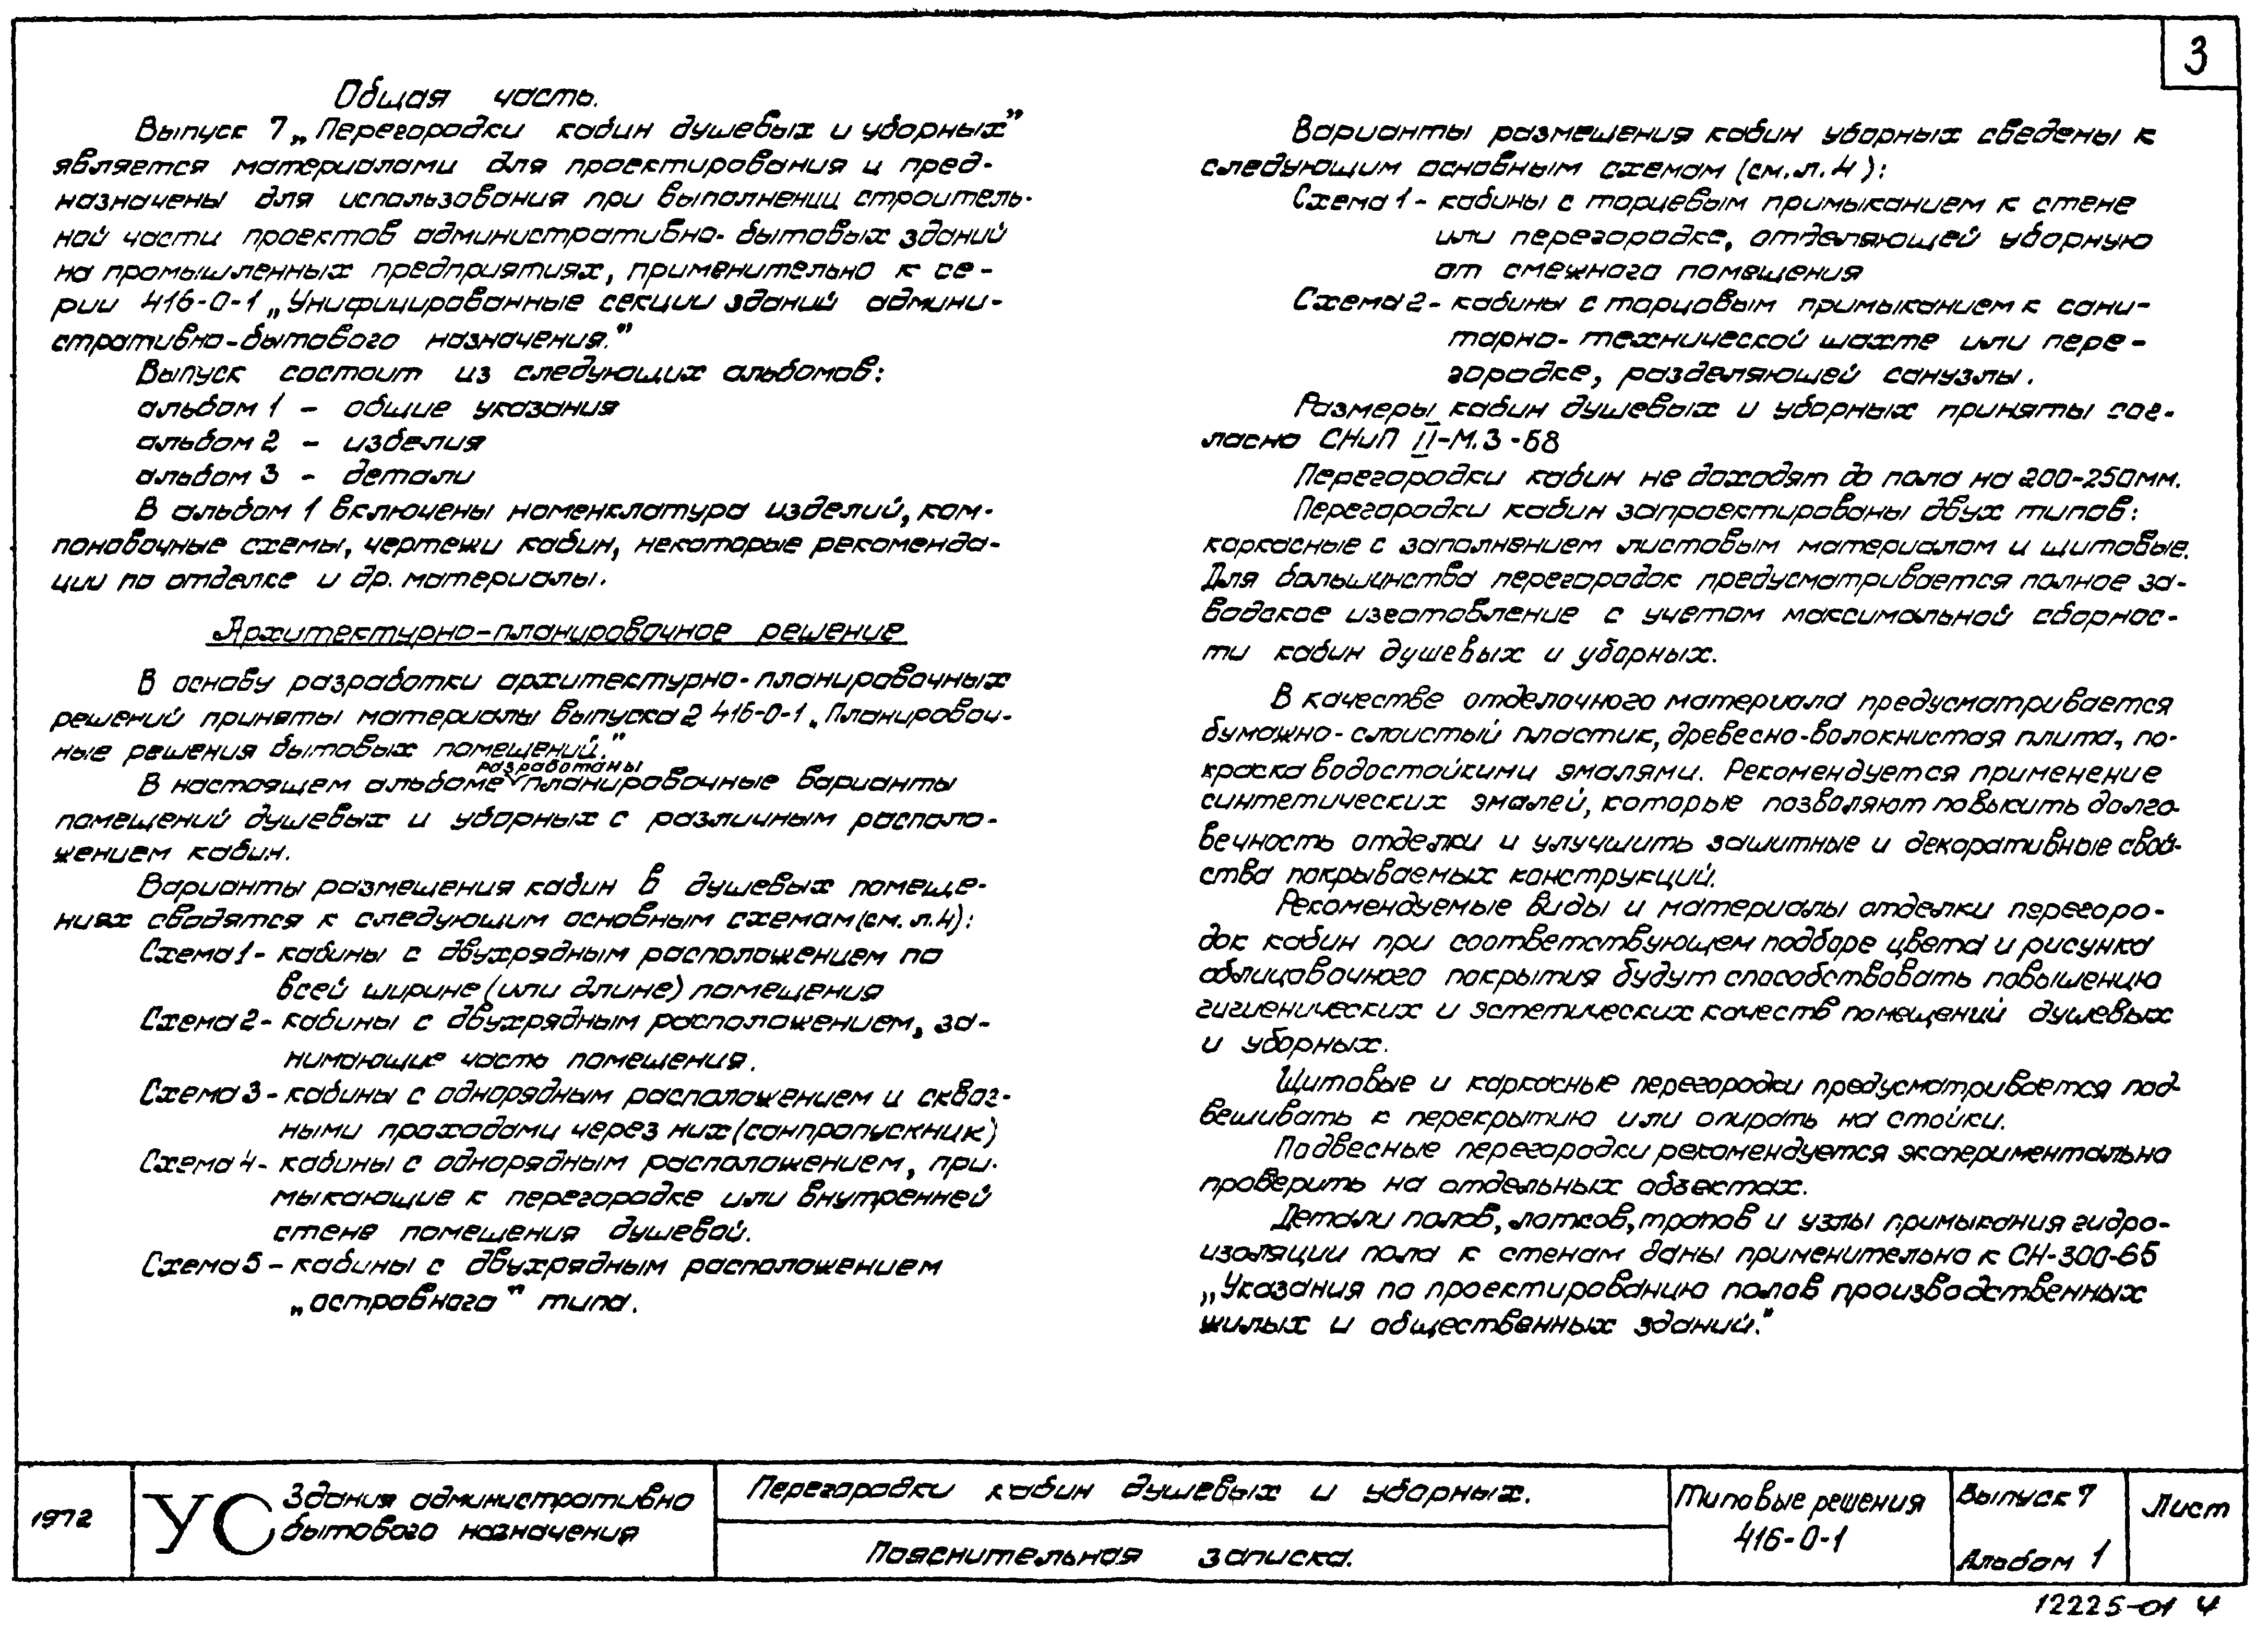 3
Общая часть.
Выпуск 7 „Перегородки кабин душевых и уборных"
является материалами для проектирования и пред-
назначены для использования при выполнении строитель-
ной части проектов административно-бытовых зданий
на промышленных предприятиях, применительно к се-
рии 416-0-1 „Унифицированные секции зданий админи-
стративно-бытового назначения."
Выпуск состоит из следующих альбомов:
альбом 1 – общие указания
альбом 2 – изделия
альбом 3 – детали
В альбом 1 включены номенклатура изделий, ком-
поновочные схемы, чертежи кабин, некоторые рекоменда-
ции по отделке и др. материалы.
Архитектурно-планировочное решение
В основу разработки архитектурно-планировочных
решений приняты материалы выпуска 2 416-0-1 „Планировоч-
ные решения бытовых помещений."
разработаны
В настоящем альбоме планировочные варианты
помещений душевых и уборных с различным располо-
жением кабин.
Варианты размещения кабин в душевых помеще-
ниях сводятся к следующим основным схемам (см. л.4):
Схема 1 - кабины с двухрядным расположением по
всей ширине (или длине) помещения
Схема 2 - кабины с двухрядным расположением, за-
нимающие часть помещения.
Схема 3 - кабины с однорядным расположением и сквоз-
ными проходами через них (санпропускник)
Схема 4 - кабины с однорядным расположением, при-
мыкающие к перегородке или внутренней
стене помещения душевой.
Схема 5 – кабины с двухрядным расположением
„островного" типа.
Варианты размещения кабин уборных сведены к
следующим основным схемам (см. л. 4):
Схема 1 - кабины с торцевым примыканием к стене
или перегородке, отделяющей уборную
от смежного помещения
Схема 2 - кабины с торцовым примыканием к сани-
тарно-технической шахте или пере-
городке, разделяющей санузлы.
Размеры кабин душевых и уборных приняты сог-
ласно СНиП II-М.3-68
Перегородки кабин не доходят до пола на 200-250мм.
Перегородки кабин запроектированы двух типов:
каркасные с заполнением листовым материалом и щитовые.
Для большинства перегородок предусматривается полное за-
водское изготовление с учетом максимальной сборнос-
ти кабин душевых и уборных.
В качестве отделочного материала предусматривается
бумажно-слоистый пластик, древесно-волокнистая плита, по-
краска водостойкими эмалями. Рекомендуется применение
синтетических эмалей, которые позволяют повысить долго-
вечность отделки и улучшить защитные и декоративные свой-
ства покрываемых конструкций.
Рекомендуемые виды и материалы отделки перегоро-
док кабин при соответствующем подборе цвета и рисунка
облицовочного покрытия будут способствовать повышению
гигиенических и эстетических качеств помещений душевых
и уборных.
Щитовые и каркасные перегородки предусматривается под-
вешивать к перекрытию или опирать на стойки.
Подвесные перегородки рекомендуется экспериментально
проверить на отдельных объектах.
Детали полов, лотков, трапов и узлы примыкания гидро-
изоляции пола к стенам даны применительно к СН-300-65
„Указания по проектированию полов производственных
жилых и общественных зданий."
1972
УС
Здания административно
бытового назначения
Перегородки кабин душевых и уборных.
Пояснительная записка.
Типовые решения
416-0-1
Выпуск 7
Альбом 1
Лист
12225-01 4